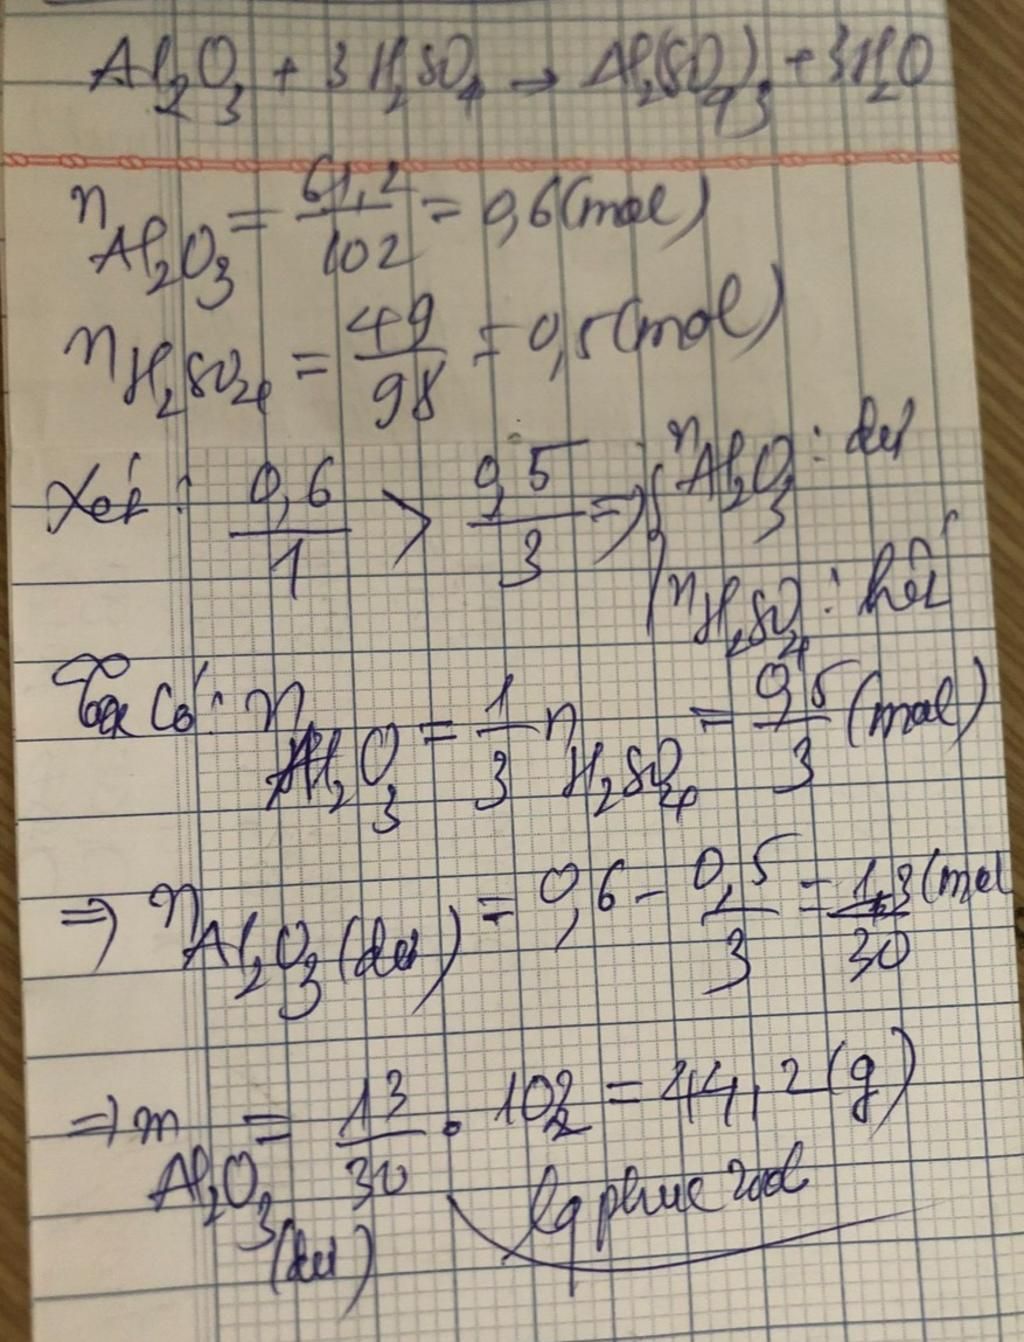 Al₂O₃ + 3H₂SO₄ → Al₂(SO₄)₃ + 3H₂O
n Al₂O₃ = 61,2/102 = 0,6 (mol)
n H₂SO₄ = 49/98 = 0,5 (mol)
Xét: 0,6/1 > 0,5/3 => { n Al₂O₃: dư
n H₂SO₄: hết
Ta có: n Al₂O₃ = 1/3 n H₂SO₄ = 0,5/3 (mol)
=> n Al₂O₃ (dư) = 0,6 - 0,5/3 = 13/30 (mol
=> m Al₂O₃ (dư) = 13/30 . 102 = 44,2 (g)